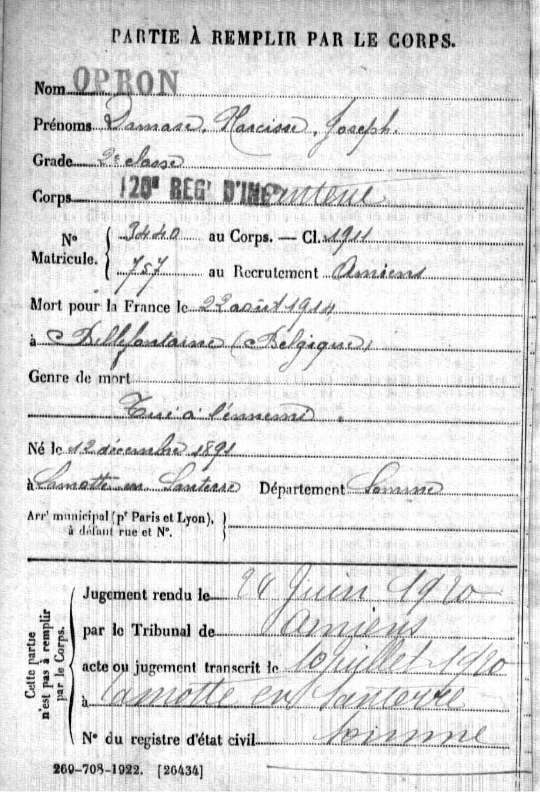 PARTIE À REMPLIR PAR LE CORPS.
Nom OPRON
Prénoms Damase, Narcisse, Joseph.
Grade 2e classe
Corps 120e REGt D'INFanterie
No Matricule. 3440 au Corps. — Cl. 1911
757 au Recrutement Amiens
Mort pour la France le 22 août 1914
à Bellefontaine (Belgique)
Genre de mort
Tué à l'ennemi.
Né le 12 décembre 1891
à Lamotte en Santerre Département Somme
Arrt municipal (pr Paris et Lyon),
à défaut rue et No.
Cette partie
n'est pas à remplir
par le Corps.
Jugement rendu le 24 Juin 1920
par le Tribunal de Amiens
acte ou jugement transcrit le 10 juillet 1920
à Lamotte en Santerre
No du registre d'état civil Somme
269-708-1922. [26434]